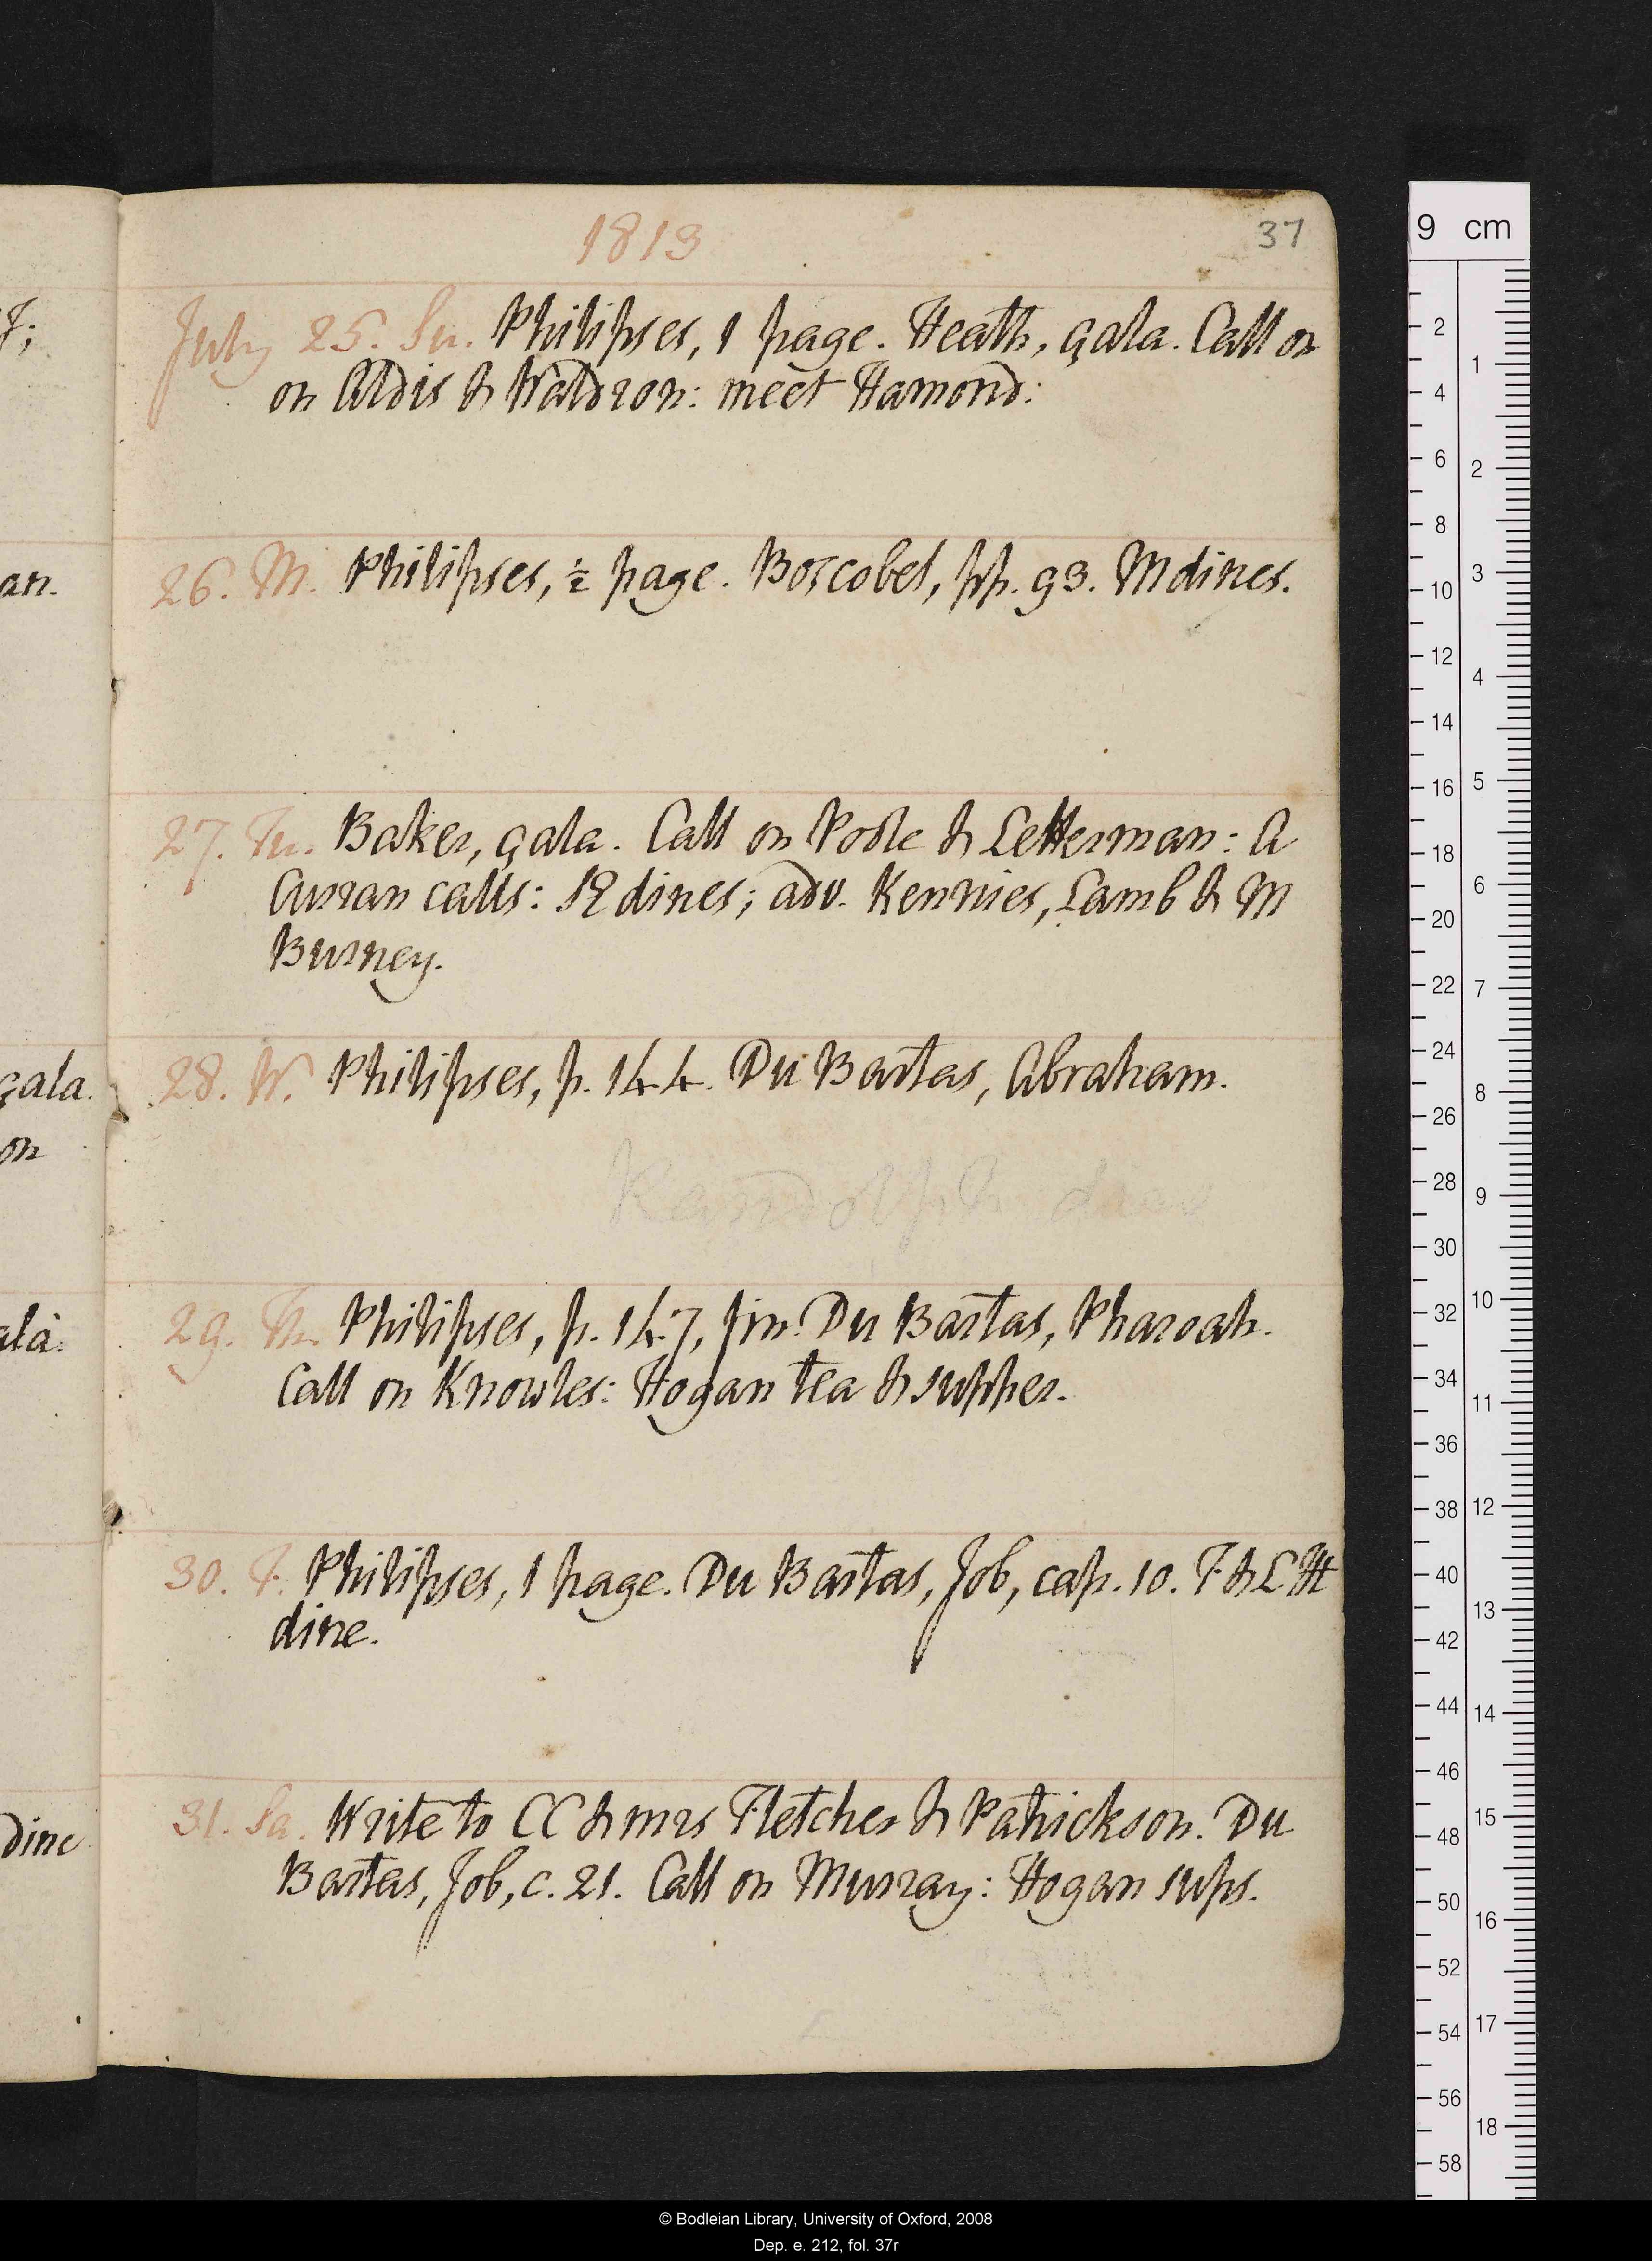 1813
37
July 25. Su. Philipses, 1 page. Heath, çala. Call on
on Aldis & Waldron: meet Hamond:
26. M. Philipses, ½ page. Boscobel, pp. 93. M dines.
27. Tu. Baker, çala. Call on Poole & Letterman: A
Curran calls: dines; adv. Kennies, Lamb & M
Burney.
28. W. Philipses, p. 144. Du Bartas, Abraham.
Randolph dine
29. Th. Philipses, p. 147, fin. Du Bartas, Pharoah.
Call on Knowles: Hogan tea & supper.
30. F. Philipses, 1 page. Du Bartas, Job, cap. 10. T & L Ht
dine.
31. Sa. Write to CC & mrs Fletcher & Patrickson. Du
Bartas, Job, c. 21. Call on Murray: Hogan sups.
an.
çala.
on
ala.
dine
9 cm
2
4
6
8
10
12
14
16
18
20
22
24
26
28
30
32
34
36
38
40
42
44
46
48
50
52
54
56
58
1
2
3
4
5
6
7
8
9
10
11
12
13
14
15
16
17
18
© Bodleian Library, University of Oxford, 2008
Dep. e. 212, fol. 37r